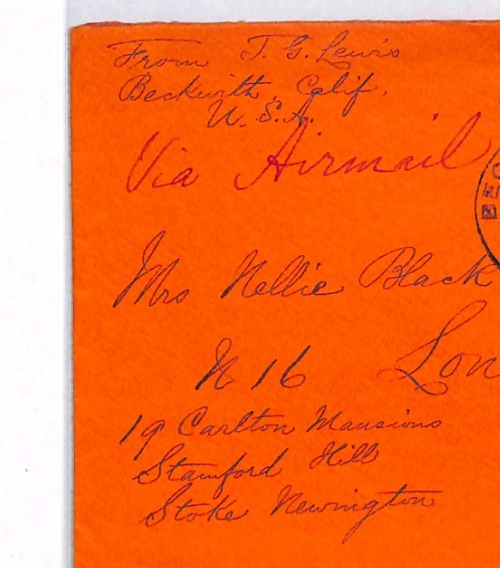 From T. G. Lewis
Beckwith, Calif.
U.S.A.
Via Airmail
BEC
Mrs Nellie Black
N 16 Lon
19 Carlton Mansions
Stamford Hill
Stoke Newington